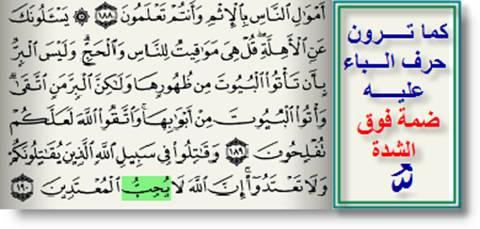 أَمْوَالِ النَّاسِ بِالْإِثْمِ وَأَنتُمْ تَعْلَمُونَ ١٨٨ ۞ يَسْـَٔلُونَكَ
عَنِ الْأَهِلَّةِ قُلْ هِيَ مَوَاقِيتُ لِلنَّاسِ وَالْحَجِّ وَلَيْسَ الْبِرُّ
بِأَن تَأْتُوا الْبُيُوتَ مِن ظُهُورِهَا وَلَٰكِنَّ الْبِرَّ مَنِ اتَّقَىٰ
وَأْتُوا الْبُيُوتَ مِنْ أَبْوَابِهَا وَاتَّقُوا اللَّهَ لَعَلَّكُمْ
تُفْلِحُونَ ١٨٩ وَقَاتِلُوا فِي سَبِيلِ اللَّهِ الَّذِينَ يُقَاتِلُونَكُمْ
وَلَا تَعْتَدُوا إِنَّ اللَّهَ لَا يُحِبُّ الْمُعْتَدِينَ ١٩٠
كما تـــرون
حرف الـباء
عليـــه
ضمة فوق
الشدة
ـُّ